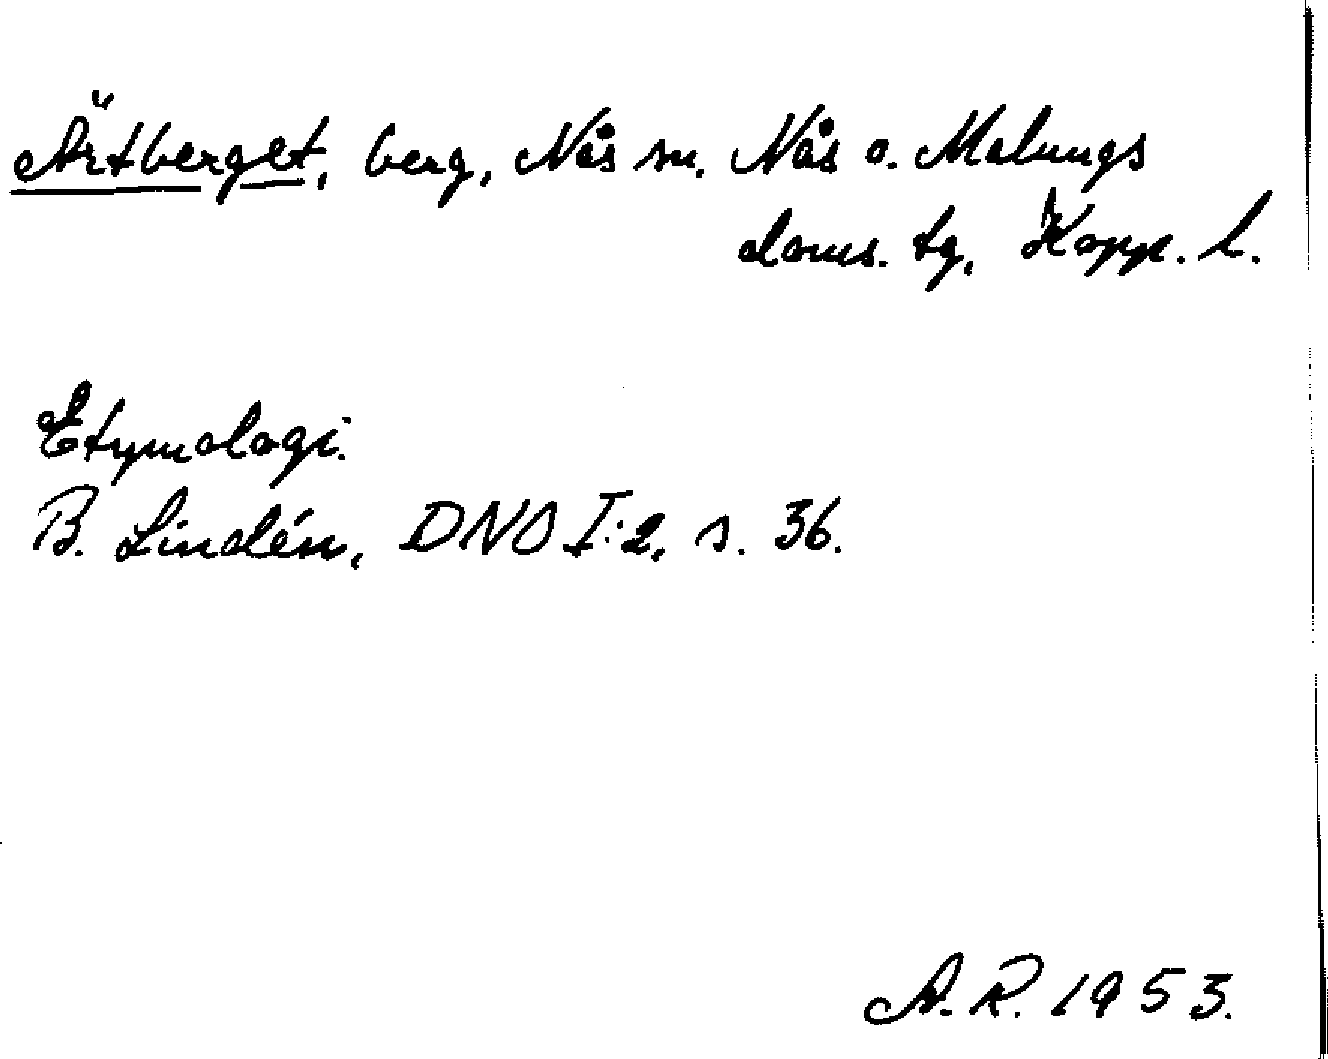 Ärtberget, berg, Nås sn. Nås o. Malungs
doms. tg, Kopp. l.
Etymologi.
B. Lindén, DNO I:2, s. 36.
A.R. 1953.